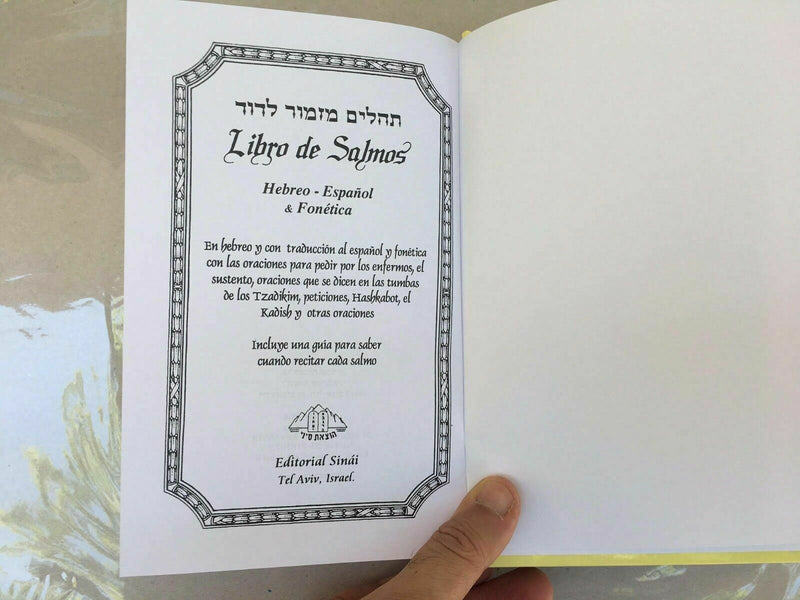 תהלים מזמור לדוד
Libro de Salmos
Hebreo - Español
& Fonética
En hebreo y con traducción al español y fonética
con las oraciones para pedir por los enfermos, el
sustento, oraciones que se dicen en las tumbas
de los Tzadikim, peticiones, Hashkabot, el
Kadish y otras oraciones
Incluye una guía para saber
cuando recitar cada salmo
הוצאת סיני
Editorial Sinái
Tel Aviv, Israel.